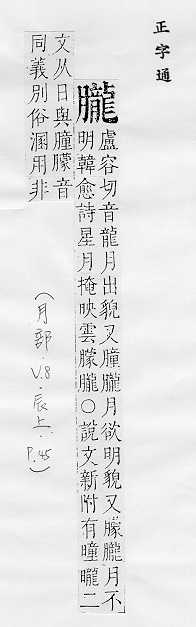 正字通
朧
盧容切音龍月出貌又朣朧月欲明貌又朦朧月不
明韓愈詩星月掩映雲朦朧○說文新附有曈曨二
文从日與朣朦音
同義別俗溷用非
(月部.V.8.辰上.P.45)